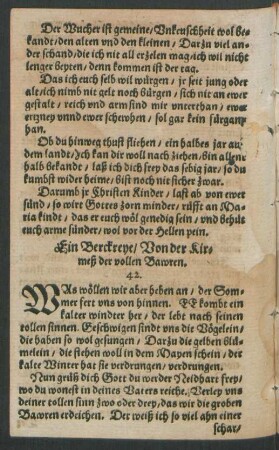 Der Wucher ist gemeine/Vnkeuschheit wol be-
kande/den alten vnd den kleinen/Darzu viel an-
der schand/die ich nit all erzelen mag/ich wil nicht
lenger beyten/denn kommen ist der tag.
Das ich euch selb wil würgen/jr seit jung oder
alt/ich nimb nit gelt noch bürgen/sich nit an ewer
gestalt/reich vnd arm sind mir vnterthan/ewer
ertzney vnnd ewer schewhen/sol gar kein fürgang
han.
Ob du hinweg thust fliehen/ein halbes jar auß
dem lande/Ich kan dir woll nach ziehen/bin allent-
halb bekande/laß ich dich frey das sebig jar/so du
kumbst wider heime/bist noch nit sicher zwar.
Darumb jr Christen Kinder/last ab von ewer
sünd/so wirt Gottes zorn minder/rüfft an Ma-
ria kindt/das er euch wöl genedig sein/vnd behüt
euch arme sünder/wol vor der Hellen pein.
Ein Berckreye/Von der Kir-
meß der vollen Bawren.
42.
WAs wöllen wir aber heben an/der Som-
mer fert vns von hinnen. Es kombt ein
kalter windter her/der lebt nach seinen
vollen sinnen. Geschwigen sindt vns die Vögelein/
die haben so wol gesungen/Darzu die gelben blü-
melein/die stehen woll in dem Mayen schein/der
kalte Winter hat sie verdrungen/verdrungen.
Nun grüß dich Gott du werder Neidhart frey/
wo du wonest in deines Vaters reiche. Verley vns
deiner tollen sinn zwo oder drey/das wir die groben
Bawren erdeichen. Der weiß ich so viel ahn einer
schar/